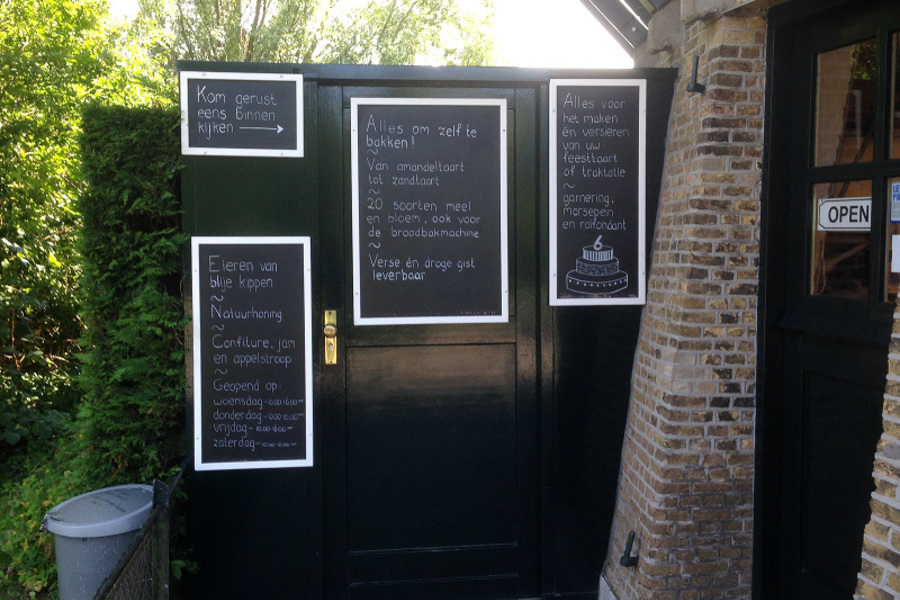 Kom gerust
eens binnen
kijken
Alles om zelf te
bakken!
~
Van amandeltaart
tot zandtaart
~
20 soorten meel
en bloem, ook voor
de broodbakmachine
~
Verse én droge gist
leverbaar
Alles voor
het maken
én versieren
van uw
feesttaart
of traktatie
~
garnering,
marsepein
en rolfondant
6
Eieren van
blije kippen
~
Natuurhoning
~
Confiture, jam
en appelstroop
~
Geopend op:
woensdag-10.00-16.00
donderdag-
vrijdag-10.00-16.00
zaterdag-10.00-16.00
OPEN